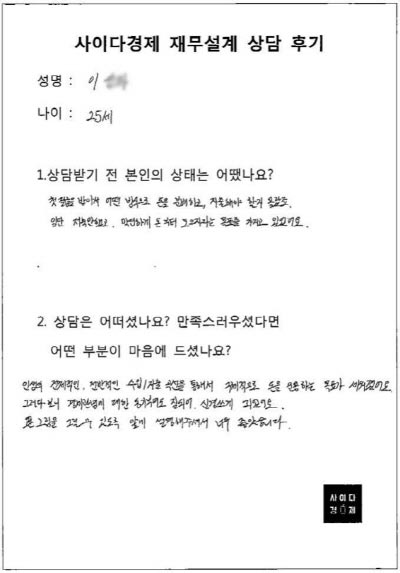 사이다경제 재무설계 상담 후기
성명 : 이
나이 : 25세
1.상담받기 전 본인의 상태는 어땠나요?
첫 월급 받아서 어떤 방식으로 돈을 관리하고, 저축해야 할지 몰랐죠.
일단 저축만하고, 막연하게 돈 모으자라는 목표를 가지고 있었어요.
2. 상담은 어떠셨나요? 만족스러우셨다면
어떤 부분이 마음에 드셨나요?
인생의 전체적인, 전반적인 수입/지출 을 통해서 구체적으로 돈을 운용하는 목표가 세워졌어요.
그러다보니 경제관념에 대한 동기부여도 잘되어, 신경쓰게 되고요.
큰그림을 그릴 수 있도록 알기 설명해주셔서 너무 좋았습니다.
사이다
경제